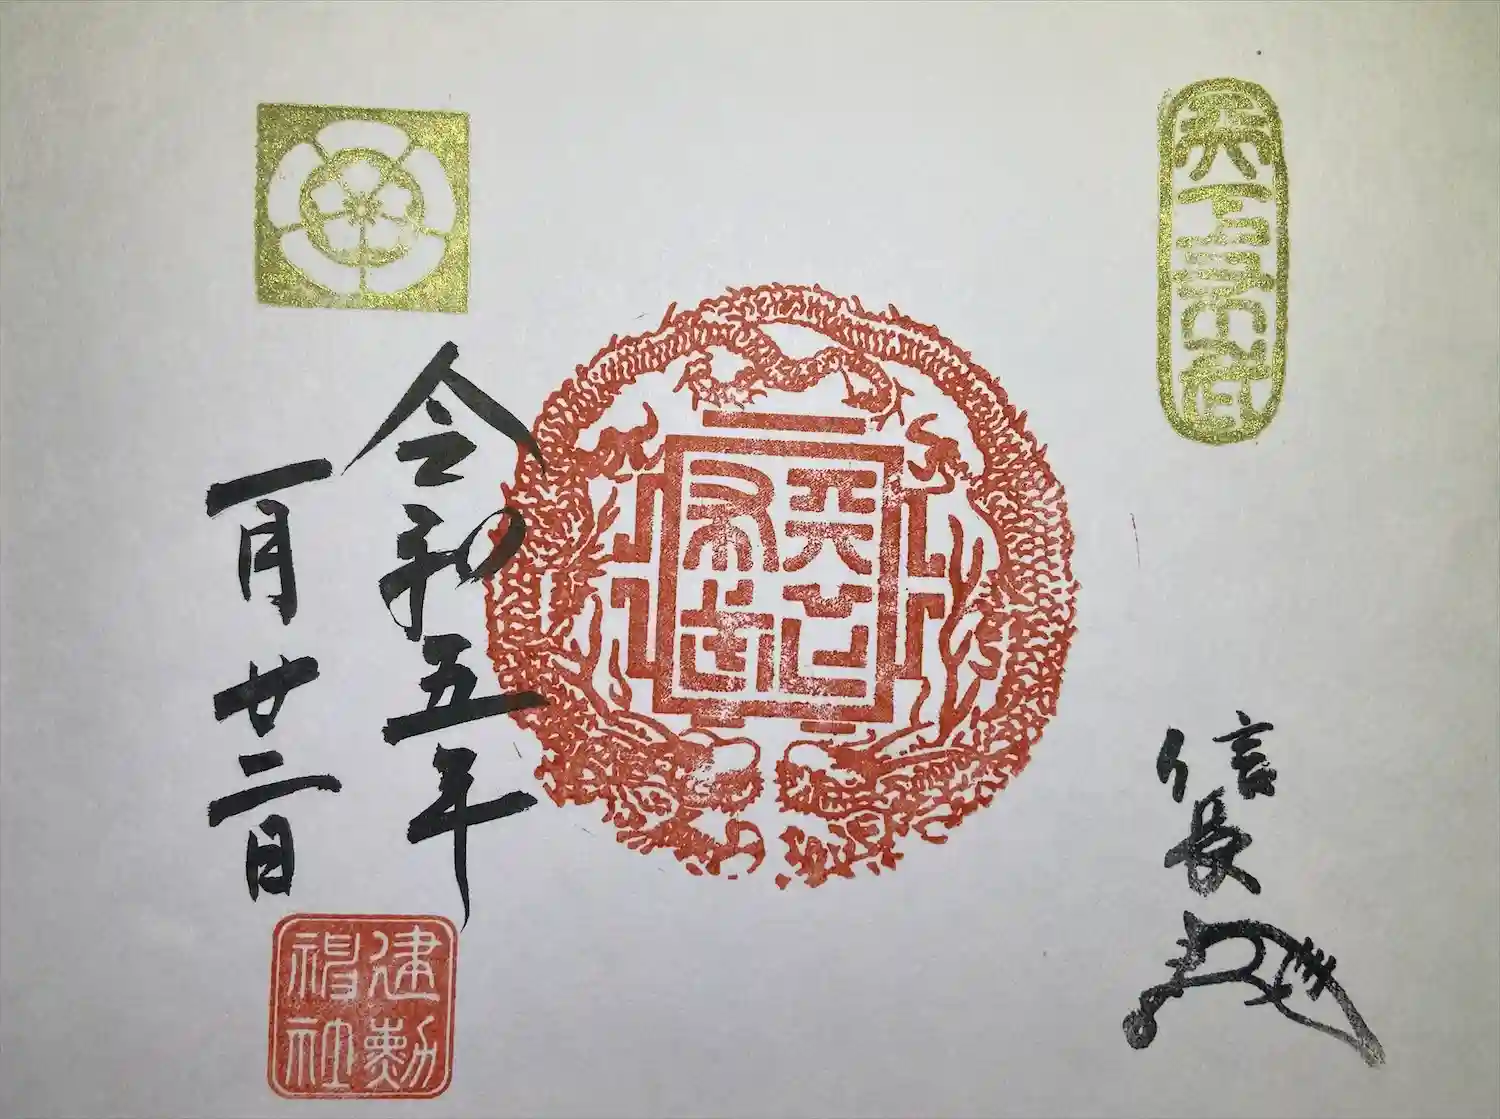 天下布武
天下布武
信長
令和五年
一月廿二日
建勲神社